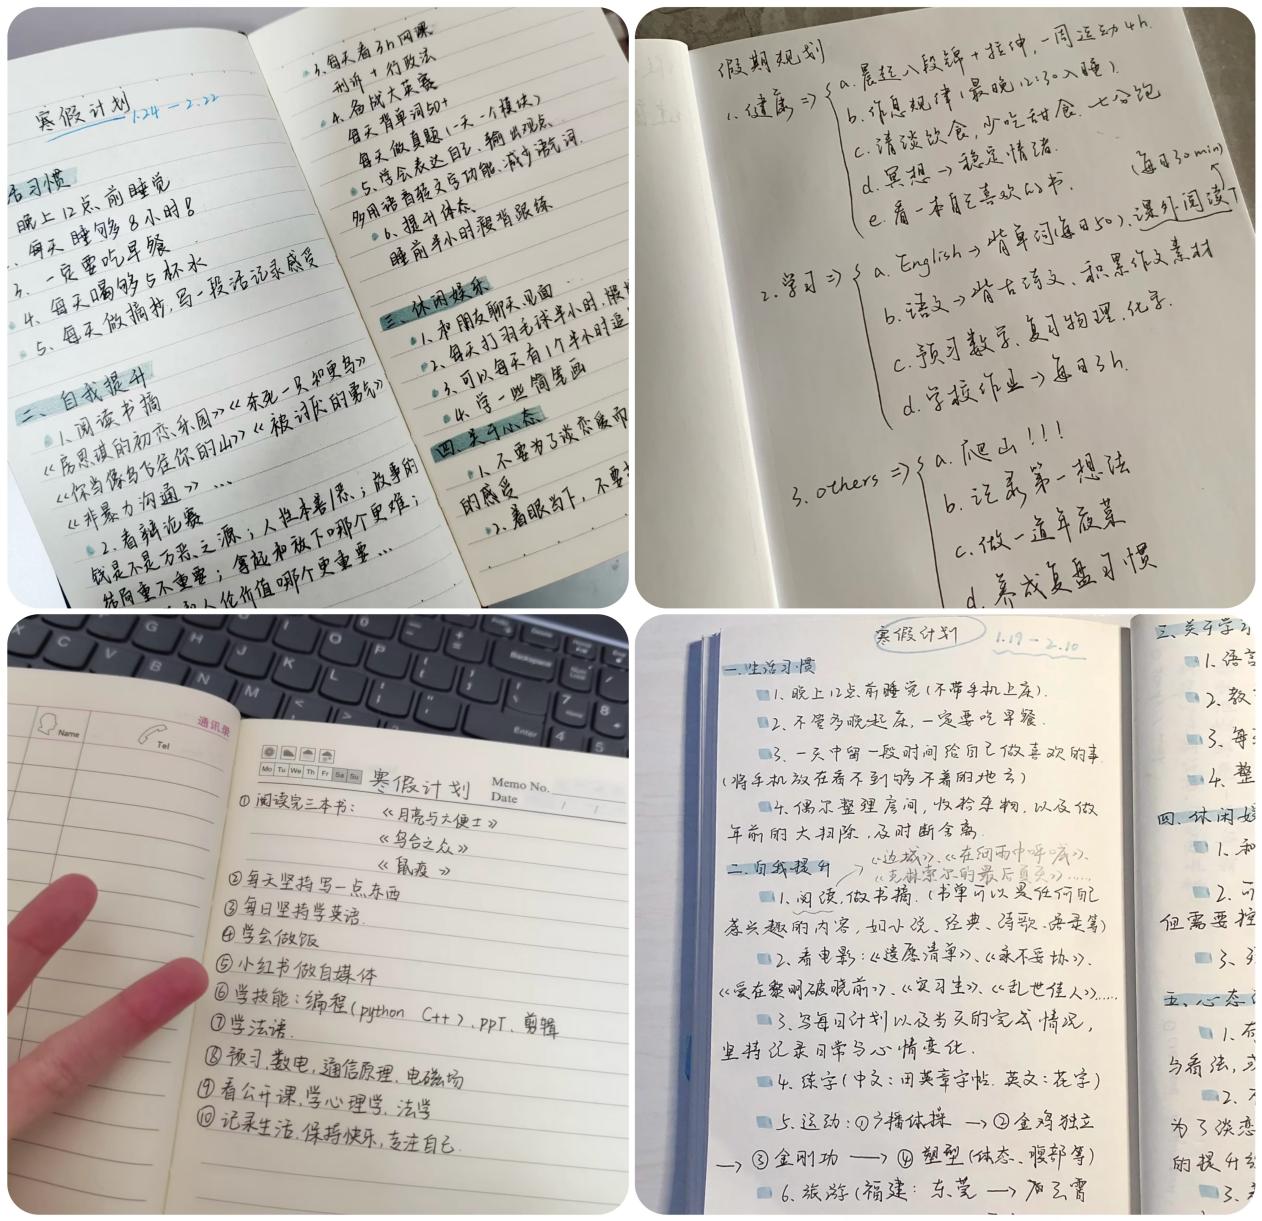 寒假计划 1.24－2.22
活习惯
晚上12点前睡觉
每天睡够8小时!
3、一定要吃早餐
4、每天喝够5杯水
5、每天做摘抄,写一段话记录感受
二、自我提升
1、阅读书摘
《房思琪的初恋乐园》《东死一只知更鸟》
《你当像鸟飞往你的山》《被讨厌的勇气》
《非暴力沟通》…
2、看辩论赛
钱是不是万恶之源;人性本善/恶;故事的
结局重不重要;拿起和放下哪个更难;
价值哪个更重要…
3、每天看3h网课
刑诉+行政法
4、备战大英赛
每天背单词50+
每天做真题(一天一个模块)
5、学会表达自己、输出观点
多用语音转文字功能、减少语气词.
6、提升体态
睡前半小时瘦背跟练
三、休闲娱乐
1、和朋友聊天见面
2、每天打羽毛球半小时,
3、可以每天有1个半小时追
4、学一些简笔画
四、关于心态
1、不要为了谈恋爱而
的感受
2、着眼当下,不要
假期规划
1.健康=>
a.晨起八段锦+拉伸,一周运动4h.
b.作息规律(最晚12:30入睡)
c.清淡饮食,少吃甜食.七分饱
d.冥想→稳定情绪.
e.看一本自己喜欢的书.
(每日30min)
2.学习=>
a.English→背单词(每日50).课外阅读
b.语文→背古诗文、积累作文素材
c.预习数学.复习物理.化学.
d.学校作业→每日3h.
3.others=>
a.爬山!!!
b.记录第一想法
c.做一道年夜菜
d.养成复盘习惯
通讯录
Name
Tel
Mo Tu We Th Fr Sa Su
寒假计划
Memo No.
Date / /
①阅读完三本书:《月亮与六便士》
《乌合之众》
《鼠疫》
②每天坚持写一点东西
③每日坚持学英语.
④学会做饭
⑤小红书做自媒体
⑥学技能:编程(python C++).ppT.剪辑
⑦学法语.
⑧预习.数电.通信原理.电磁场
⑨看公开课.学心理学.法学
⑩记录生活.保持快乐,专注自己.
寒假计划 1.19－2.10
一.生活习惯
1.晚上12点前睡觉(不带手机上床).
2.不管多晚起床,一定要吃早餐.
3.一天中留一段时间给自己做喜欢的事
(将手机放在看不到够不着的地方)
4.偶尔整理房间,收拾杂物,以及做
年前的大扫除,及时断舍离.
二.自我提升
《边城》、《在细雨中呼喊》、
《克林索尔的最后夏天》……
1.阅读,做书摘.(书单可以是任何能
及兴趣的内容,如小说、经典、诗歌、语录等)
2.看电影:《遗愿清单》、《永不妥协》、
《爱在黎明破晓前》、《实习生》、《乱世佳人》……
3.写每日计划以及当天的完成情况,
坚持记录日常与心情变化.
4.练字(中文:田英章字帖.英文:花字)
5.运动:①广播体操→②金鸡独立
→③金刚功→④塑型(体态、腹部等)
6.旅游(福建:东莞→
三.关于学习
1.语言
2.教
3.每
4.整
四.休闲娱
1.和
2.可
但需要控
3.
五.心态
1.在
与看法,
2.不
为了谈恋
的提升
3.